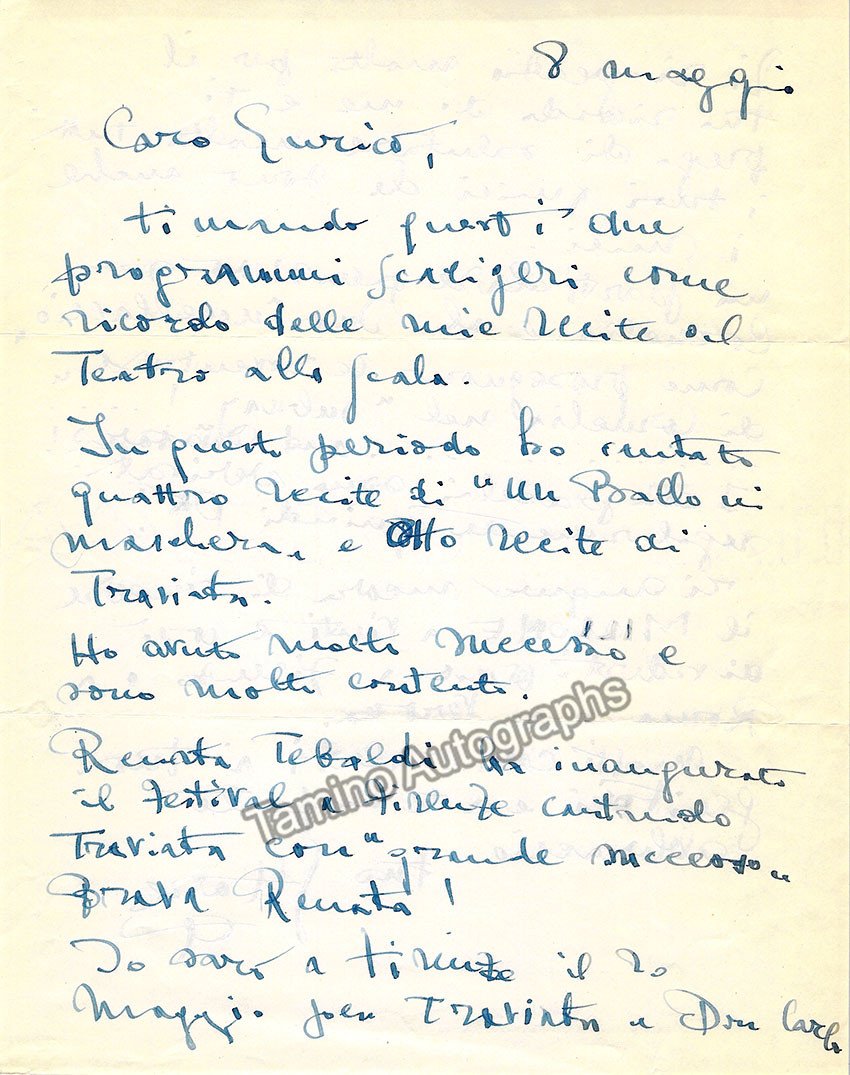 8 maggio
Caro Enrico,
ti mando questi due
programmi scaligeri come
ricordo delle mie recite al
Teatro alla Scala.
In questo periodo ho cantato
quattro recite di "Un Ballo in
maschera, e otto recite di
Traviata.
Ho avuto molto successo e
sono molto contento.
Renata Tebaldi ha inaugurato
il Festival a Firenze cantando
Traviata con "grande successo"
brava Renata!
Io sarò a Firenze il 20
Maggio per Traviata e Don Carlo
Tamino Autographs